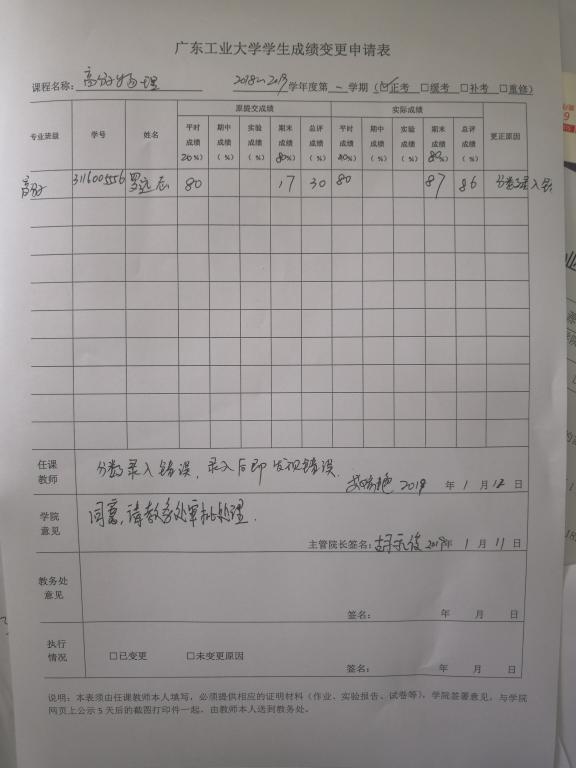 广东工业大学学生成绩变更申请表
课程名称：高分子物理 2018~2019学年度第一学期（☑正考 □缓考 □补考 □重修）
专业班级 学号 姓名 原提交成绩 实际成绩 更正原因
平时成绩（20%） 期中成绩（ %） 实验成绩（ %） 期末成绩（80%） 总评成绩（ %） 平时成绩（20%） 期中成绩（ %） 实验成绩（ %） 期末成绩（80%） 总评成绩（ %）
高分子 3116005556 罗远志 80 17 30 80 87 86 分数录入错
任课教师 分数录入错误，录入后即发现错误.
2019 年 1 月 12 日
学院意见 同意，请教务处审批处理.
主管院长签名： 2019年 1 月 11 日
教务处意见
签名： 年 月 日
执行情况 □已变更 □未变更原因
签名： 年 月 日
说明：本表须由任课教师本人填写，必须提供相应的证明材料（作业、实验报告、试卷等），学院签署意见，与学院
网页上公示 5 天后的截图打印件一起，由教师本人送到教务处。